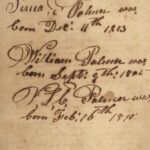 Palmer was
born Dec. 4th 1813
William Palmer was
born Sept. 9th
Palmer was
born Feb. 16th 1810